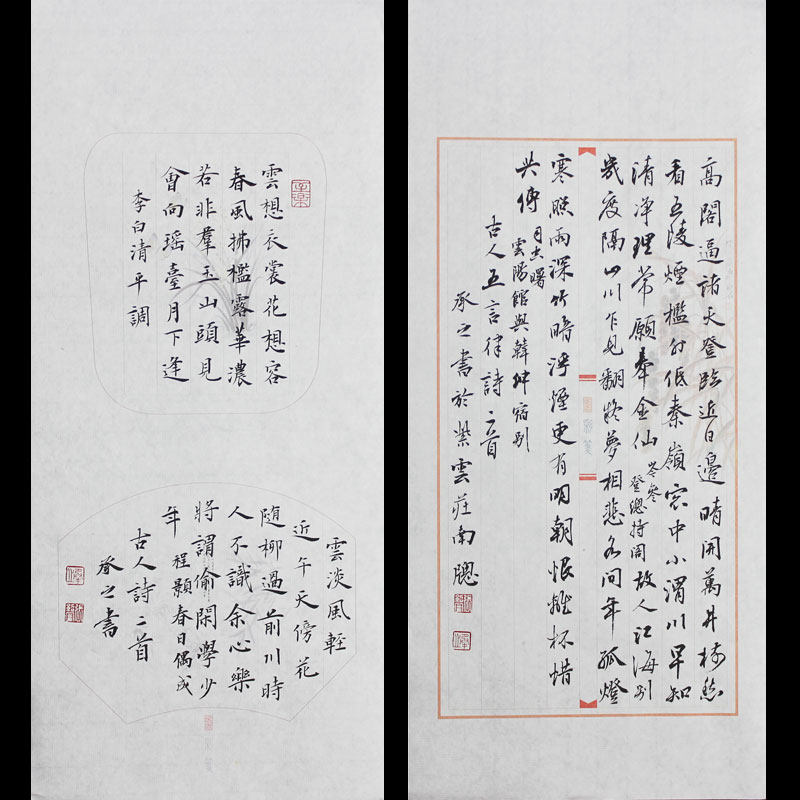 雲想衣裳花想容
春風拂檻露華濃
若非羣玉山頭見
會向瑶臺月下逢
李白清平調
雲淡風輕
近午天傍花
随柳過前川時
人不識余心樂
將謂偷閑學少
年
程顥春日偶成
古人詩二首
承之書
高閣逼諸天登臨近日邊晴開萬井樹愁
看五陵煙檻外低秦嶺窗中小渭川早知
清淨理常願奉金仙
岑參
登總持閣
故人江海別
幾度隔山川乍見翻疑夢相悲各問年孤燈
寒照雨深竹暗浮煙更有明朝恨離杯惜
共傳
司空曙
雲陽館與韓紳宿別
古人五言律詩二首
承之書於紫雲莊南牕